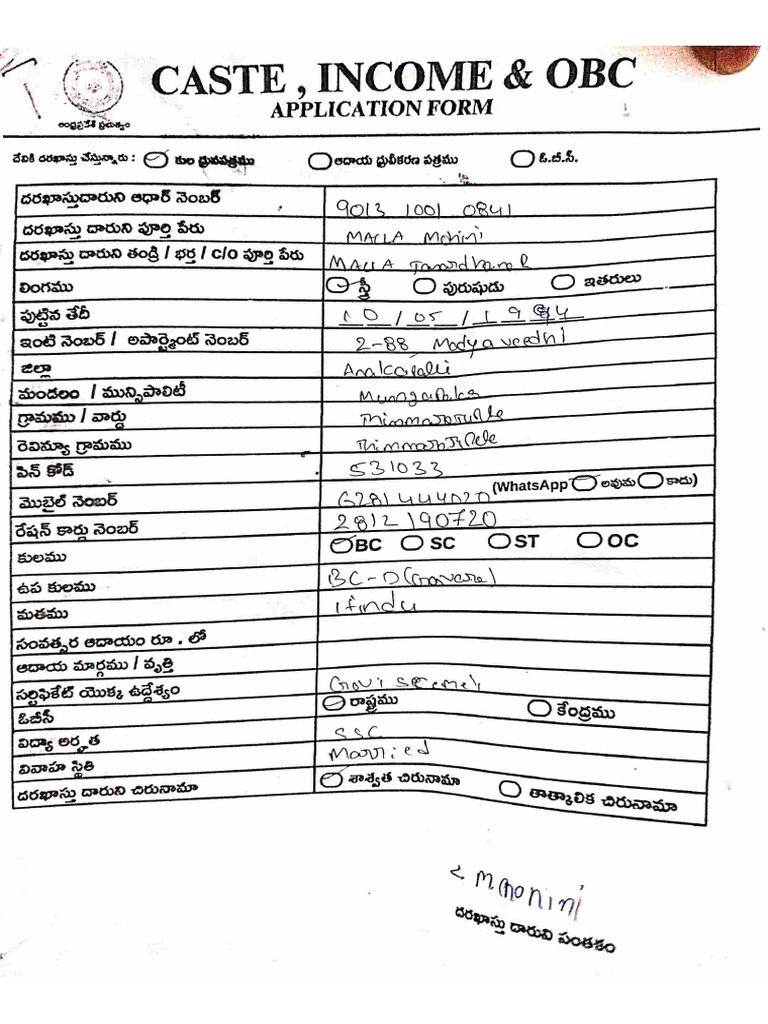 CASTE , INCOME & OBC
APPLICATION FORM
ఆంధ్రప్రదేశ్ ప్రభుత్వం
దేనికి దరఖాస్తు చేస్తున్నారు : కుల ధ్రువపత్రము ఆదాయ ధ్రువీకరణ పత్రము ఓ.బి.సి.
దరఖాస్తుదారుని ఆధార్ నెంబర్ 9013 1001 0841
దరఖాస్తు దారుని పూర్తి పేరు MALLA Mohini
దరఖాస్తు దారుని తండ్రి / భర్త / c/o పూర్తి పేరు MALLA
లింగము స్త్రీ పురుషుడు ఇతరులు
పుట్టిన తేదీ 10/05/1984
ఇంటి నెంబర్ / అపార్ట్మెంట్ నెంబర్ 2-88 Madyaveedhi
జిల్లా
మండలం / మున్సిపాలిటీ
గ్రామము / వార్డు
రెవిన్యూ గ్రామము
పిన్ కోడ్ 531033
మొబైల్ నెంబర్ 6281444020 (WhatsApp అవును కాదు)
రేషన్ కార్డు నెంబర్ 2812190720
కులము BC SC ST OC
ఉప కులము BC-D
మతము Hindu
సంవత్సర ఆదాయం రూ . లో
ఆదాయ మార్గము / వృత్తి
సర్టిఫికేట్ యొక్క ఉద్దేశ్యం
ఓబీసీ రాష్ట్రము కేంద్రము
విద్యా అర్హత SSC
వివాహ స్థితి Married
దరఖాస్తు దారుని చిరునామా శాశ్వత చిరునామా తాత్కాలిక చిరునామా
దరఖాస్తు దారుని సంతకం